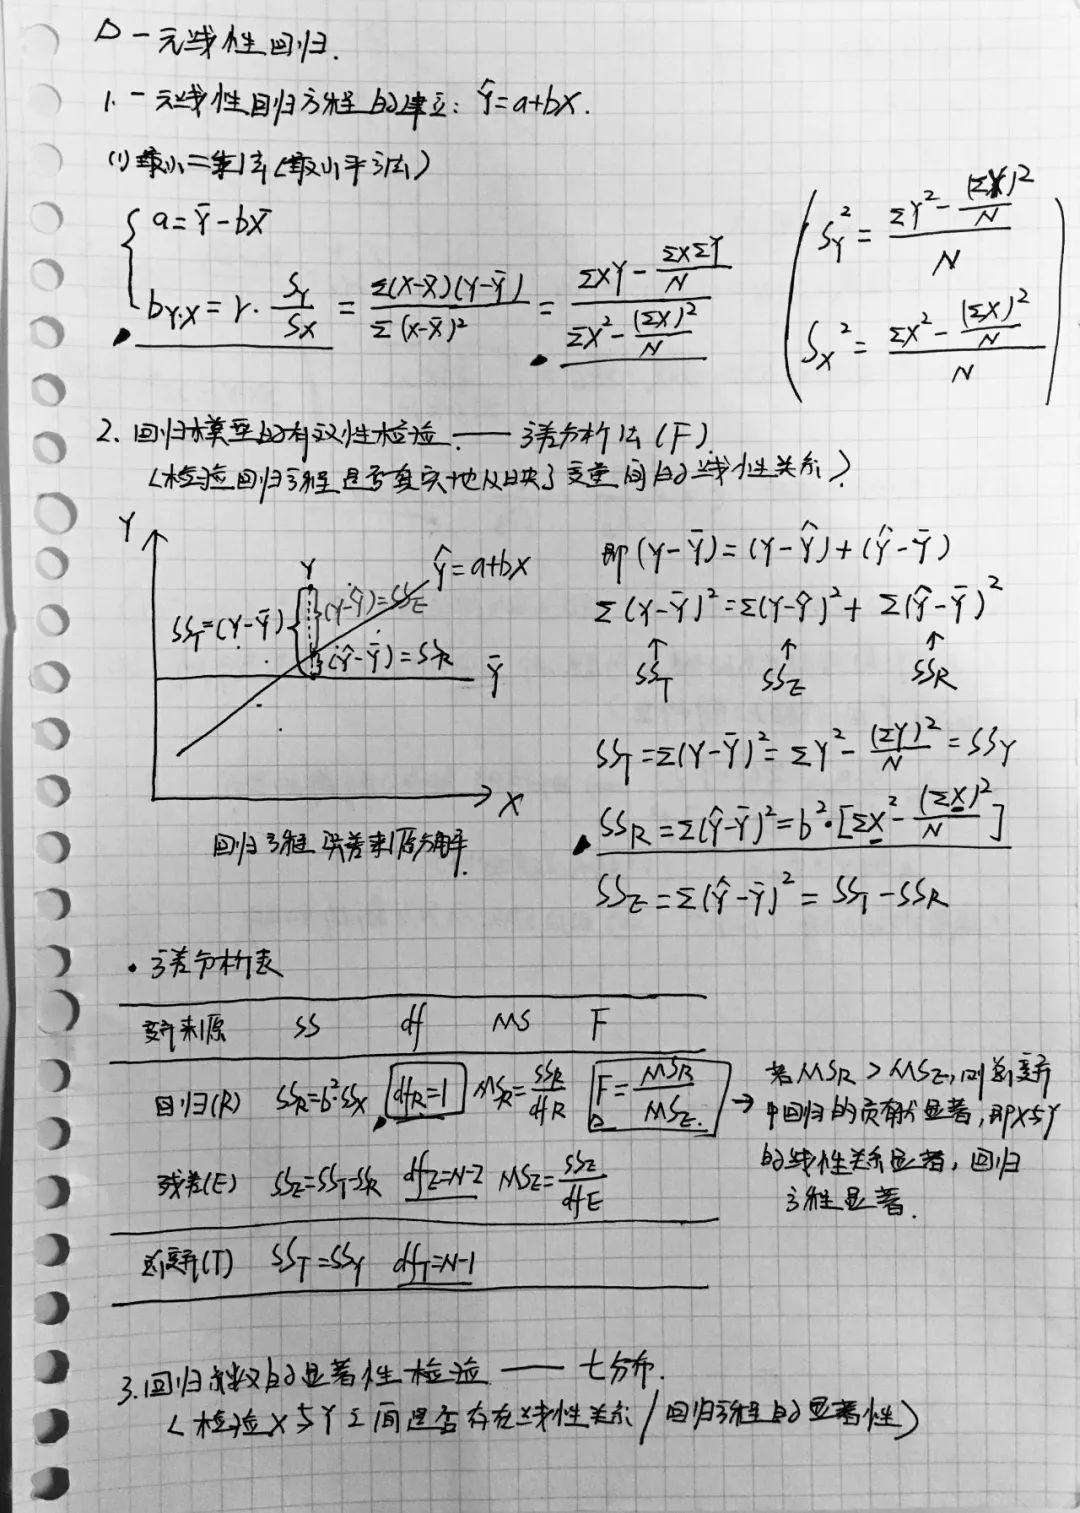 ▷ 一元线性回归.
1. 一元线性回归方程的建立: Ŷ=a+bX.
(1) 最小二乘法(最小平方法)
{ a=Ȳ-bX̄
b_{Y·X} = r·S_Y/S_X = Σ(X-X̄)(Y-Ȳ)/Σ(X-X̄)² = (ΣXY - ΣXΣY/N)/(ΣX² - (ΣX)²/N)
( S_Y² = (ΣY² - (ΣY)²/N)/N
S_X² = (ΣX² - (ΣX)²/N)/N )
2. 回归模型的有效性检验 —— 方差分析法(F).
(检验回归方程是否真实地反映了变量间的线性关系)
Y
Y
Ŷ=a+bX
SS_T=(Y-Ȳ)
(Y-Ŷ)=SS_E
(Ŷ-Ȳ)=SS_R
Ȳ
X
回归方程误差来源分解.
即(Y-Ȳ)=(Y-Ŷ)+(Ŷ-Ȳ)
Σ(Y-Ȳ)²=Σ(Y-Ŷ)²+Σ(Ŷ-Ȳ)²
↑ ↑ ↑
SS_T SS_E SS_R
SS_T=Σ(Y-Ȳ)²=ΣY²-(ΣY)²/N=SS_Y
SS_R=Σ(Ŷ-Ȳ)²=b²·[ΣX²-(ΣX)²/N]
SS_E=Σ(Ŷ-Ȳ)²=SS_T-SS_R
· 方差分析表
变异来源 SS df MS F
回归(R) SS_R=b²·SS_X df_R=1 MS_R=SS_R/df_R F=MS_R/MS_E
残差(E) SS_E=SS_T-SS_R df_E=N-2 MS_E=SS_E/df_E
总变异(T) SS_T=SS_Y df_T=N-1
→ 若MS_R>MS_E,则总变异
中回归的贡献显著,即X与Y
的线性关系显著,回归
方程显著.
3.回归系数的显著性检验 —— t分布.
(检验X与Y之间是否存在线性关系/回归方程的显著性)